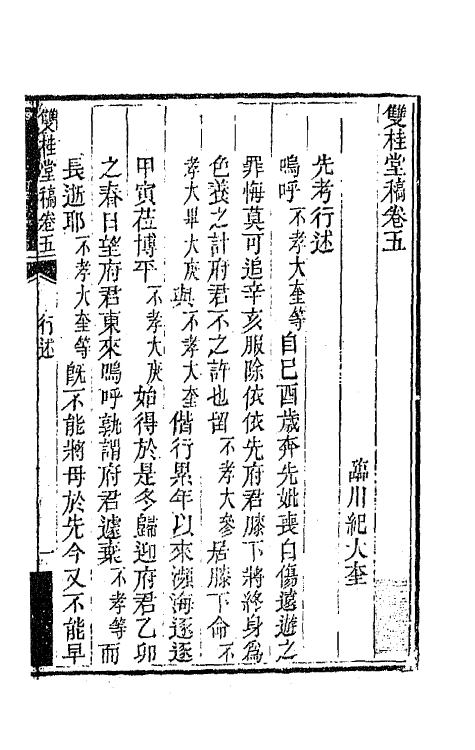 雙桂堂稿卷五
臨川紀大奎
先考行述
嗚呼不孝大奎等自己酉歲奔先妣喪自傷遠遊之
罪悔莫可追辛亥服除依依先府君膝下將終身爲
色養之計府君不之許也留不孝大參居膝下命不
孝大畢大庚與不孝大奎偕行累年以來瀕海逐逐
甲寅莅博平不孝大庚始得於是冬歸迎府君乙卯
之春日望府君東來嗚呼孰謂府君遽棄不孝等而
長逝耶不孝大奎等旣不能將母於先今又不能早
雙桂堂稿卷五
行述
一